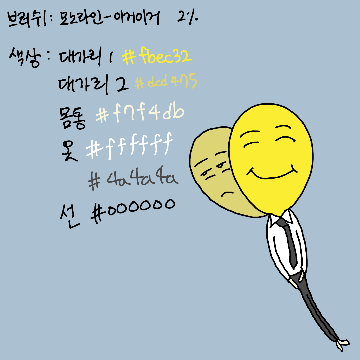 브러쉬: 모노라인-아거이거 2%
색상: 대가리1 #fbec32
대가리2 #dcd475
몸통 #f7f4db
옷 #ffffff
#4a4a4a
선 #000000